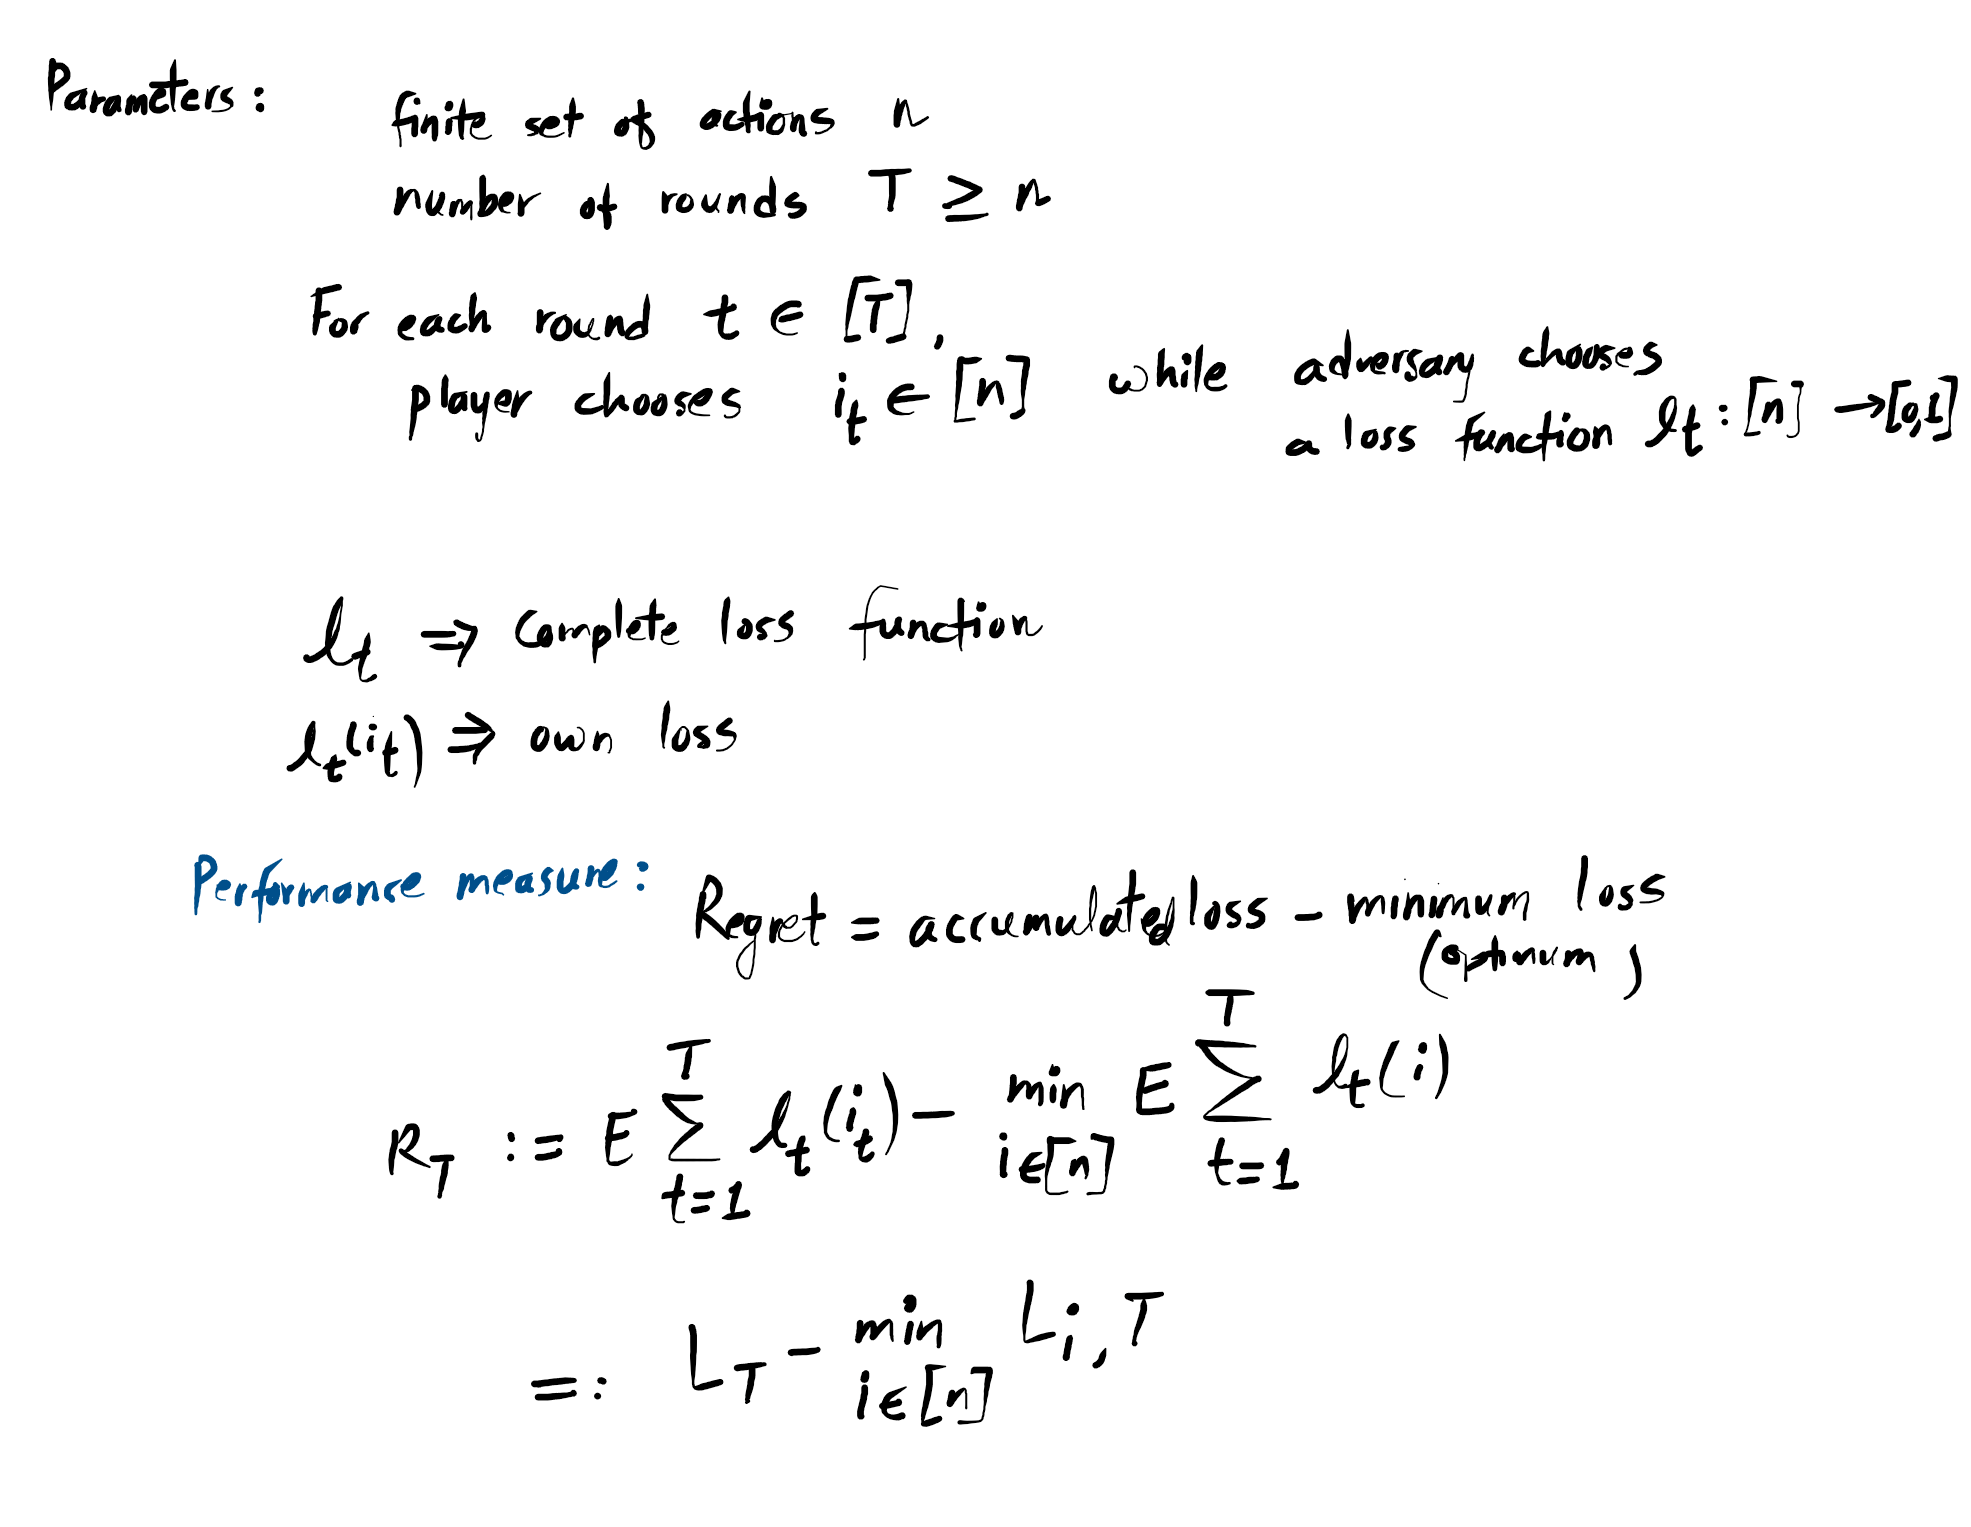 Parameters:
finite set of actions n
number of rounds T ≥ n
For each round t ∈ [T],
player chooses i_t ∈ [n] while adversary chooses
a loss function l_t : [n] → [0,1]
l_t ⇒ Complete loss function
l_t(i_t) ⇒ own loss
Performance measure: Regret = accumulated loss – minimum loss
(optimum)
R_T := E ∑_{t=1}^{T} l_t(i_t) – min_{i∈[n]} E ∑_{t=1}^{T} l_t(i)
=: L_T – min_{i∈[n]} L_{i,T}